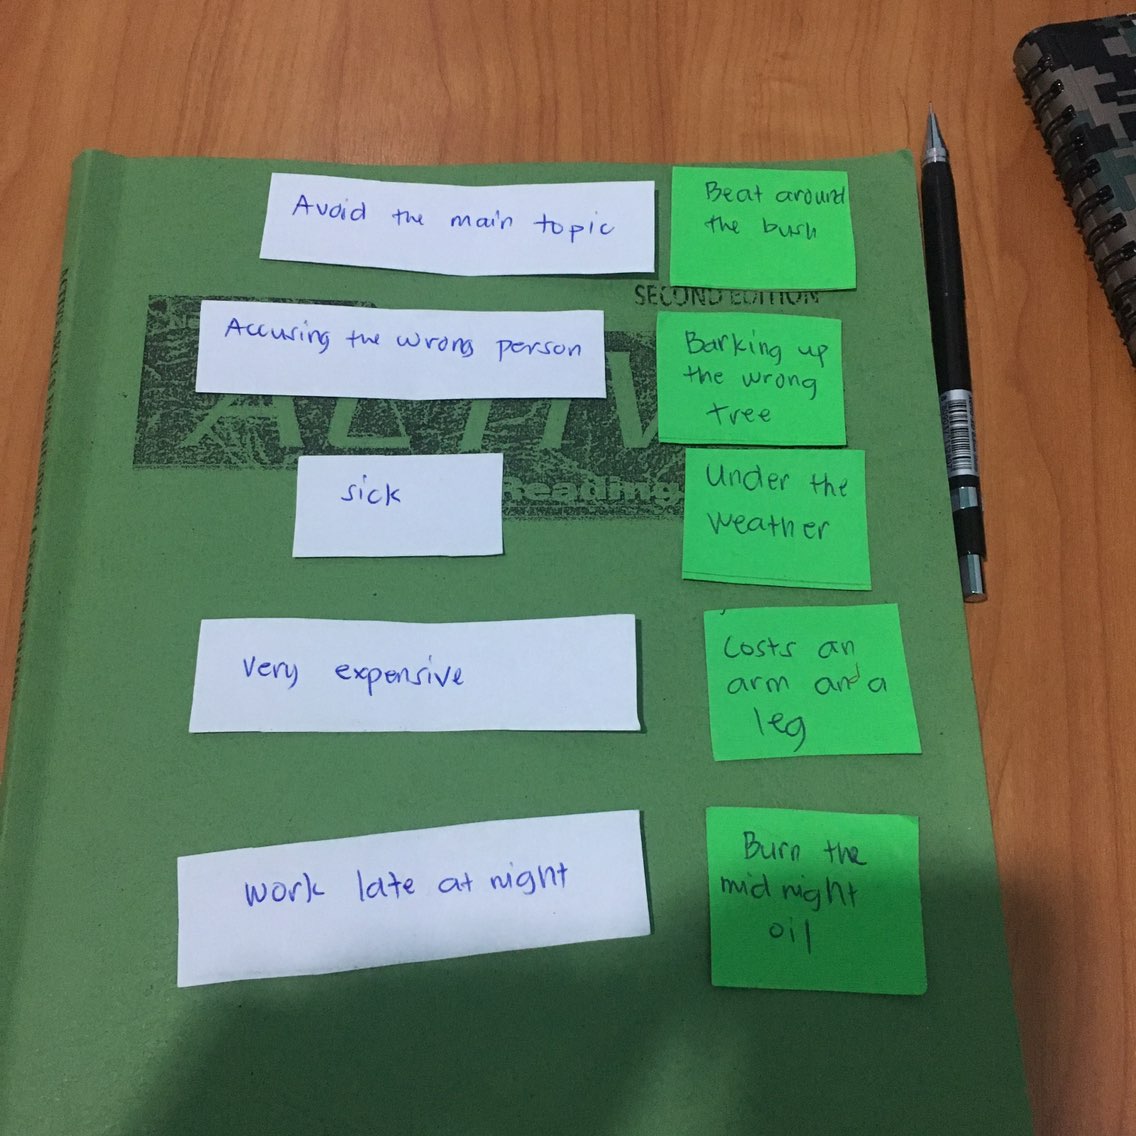 Avoid the main topic
Beat around
the bush
SECOND EDITION
Accusing the wrong person
Barking up
the wrong
tree
ACTIV
sick
Reading
Under the
weather
very expensive
Costs an
arm and a
leg
work late at night
Burn the
mid night
oil